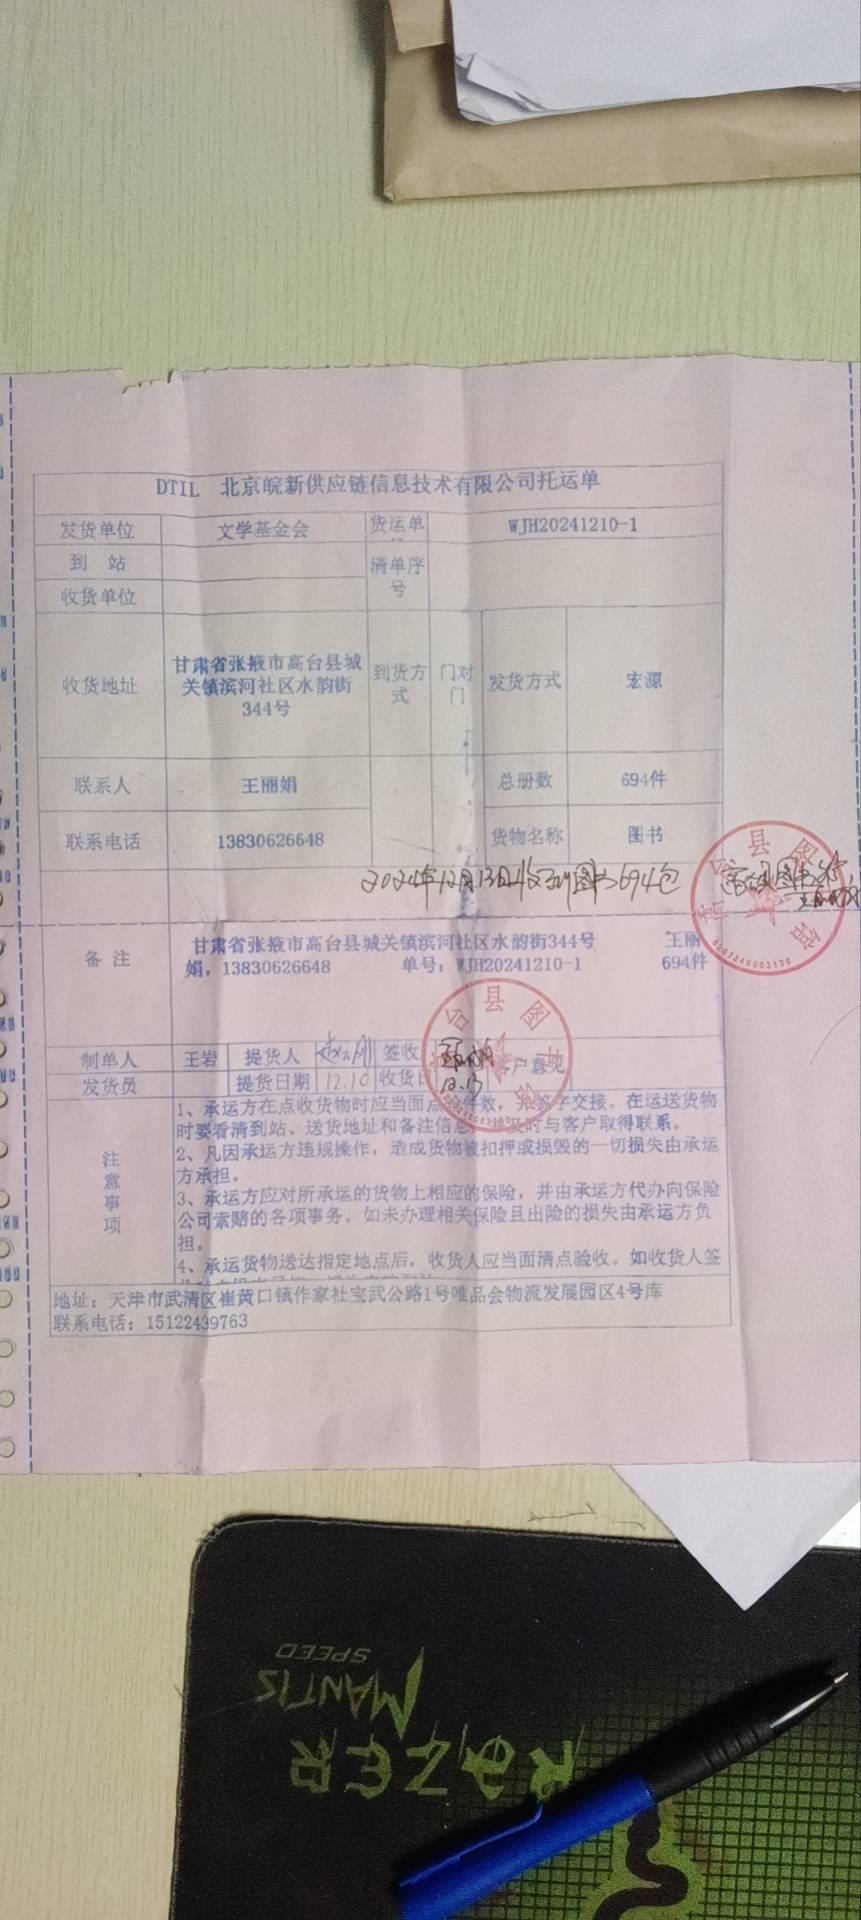 DTIL 北京皖新供应链信息技术有限公司托运单
发货单位 文学基金会 货运单 WJH20241210-1
到 站 清单序号
收货单位
收货地址 甘肃省张掖市高台县城关镇滨河社区水韵街344号 到货方式 门对门 发货方式 宏源
联系人 王丽娟 总册数 694件
联系电话 13830626648 货物名称 图书
2024年12月13日收到图书694包 高台县图书馆
备 注 甘肃省张掖市高台县城关镇滨河社区水韵街344号 王丽
娟，13830626648 单号：WJH20241210-1 694件
高台县图书馆
制单人 王岩 提货人 签收
发货员 提货日期 12.10 收货日 12.13 客户意见
注意事项
1、承运方在点收货物时应当面点 件数， 签字交接。在运送货物
时要看清到站、送货地址和备注信息， 及时与客户取得联系。
2、凡因承运方违规操作，造成货物被扣押或损毁的一切损失由承运
方承担。
3、承运方应对所承运的货物上相应的保险，并由承运方代办向保险
公司索赔的各项事务。如未办理相关保险且出险的损失由承运方负
担。
4、承运货物送达指定地点后，收货人应当面清点验收。如收货人签
地址：天津市武清区崔黄口镇作家社宝武公路1号唯品会物流发展园区4号库
联系电话：15122439763
SPEED
MANTIS
RAZER